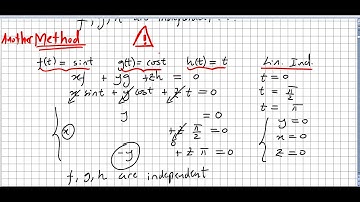 f, g, h are independent
Another Method
f(t) = sint g(t) = cost h(t) = t Lin. Ind.
xf + yg + zh = 0 t = 0
x sint + y cost + z t = 0 t = π/2
t = π
y = 0 y = 0
x + z π/2 = 0 x = 0
-y + z π = 0 z = 0
f, g, h are independent